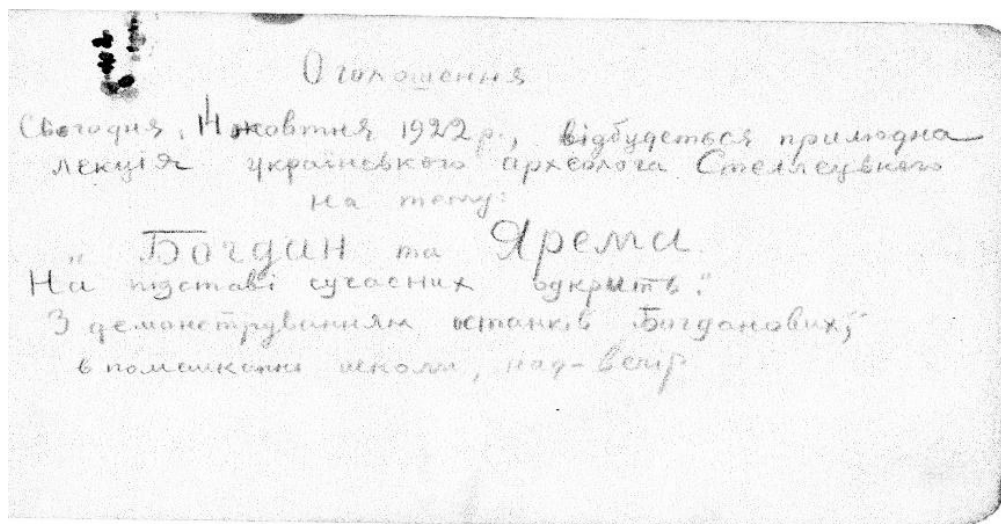 Оголошення
Сьогодня, 14 жовтня 1922 р., відбудеться прилюдна
лекція українського археолога Стеллецького
на тему:
„ Богдан та Ярема.
На підставі сучасних одкрить."
З демонструванням останків Богданових,
в помешканні школи, над-вечір